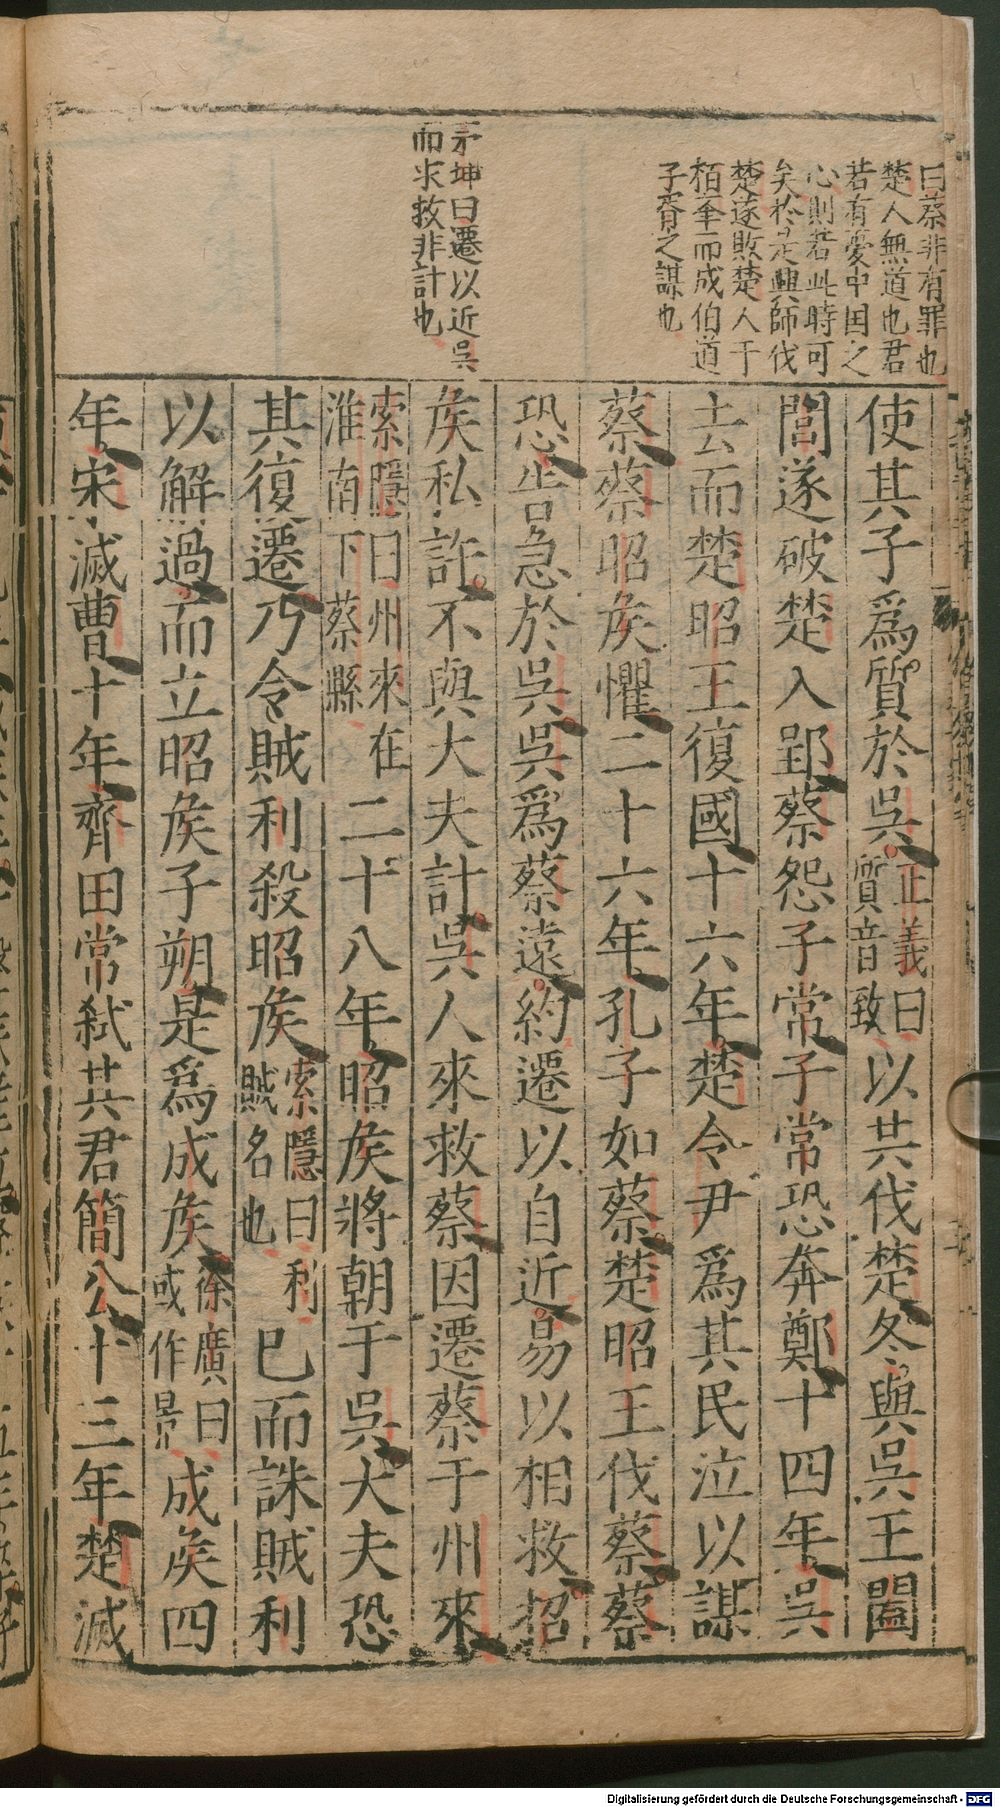 曰蔡非有罪也
楚人無道也君
若有憂中囯之
心則若此時可
矣於是興師伐
楚遂敗楚人于
栢举而成伯道
子胥之謀也
茅坤曰遷以近吳
而求救非計也
使其子爲質於吳正義曰質音致以共伐楚冬與吳王闔
閭遂破楚入郢蔡怨子常子常恐奔鄭十四年吳
去而楚昭王復國十六年楚令尹爲其民泣以謀
蔡蔡昭矦懼二十六年孔子如蔡楚昭王伐蔡蔡
恐告急於吳吳爲蔡遠約遷以自近易以相救招
矦私許不與大夫計吳人來救蔡因遷蔡于州來
索隱曰州來在淮南下蔡縣二十八年昭矦將朝于吳大夫恐
其復遷乃令賊利殺昭矦索隱曰利賊名也已而誅賊利
以解過而立昭矦子朔是爲成矦徐廣曰或作景成矦四
年宋滅曹十年齊田常弑其君簡公十三年楚滅
Digitalisierung gefördert durch die Deutsche Forschungsgemeinschaft - DFG